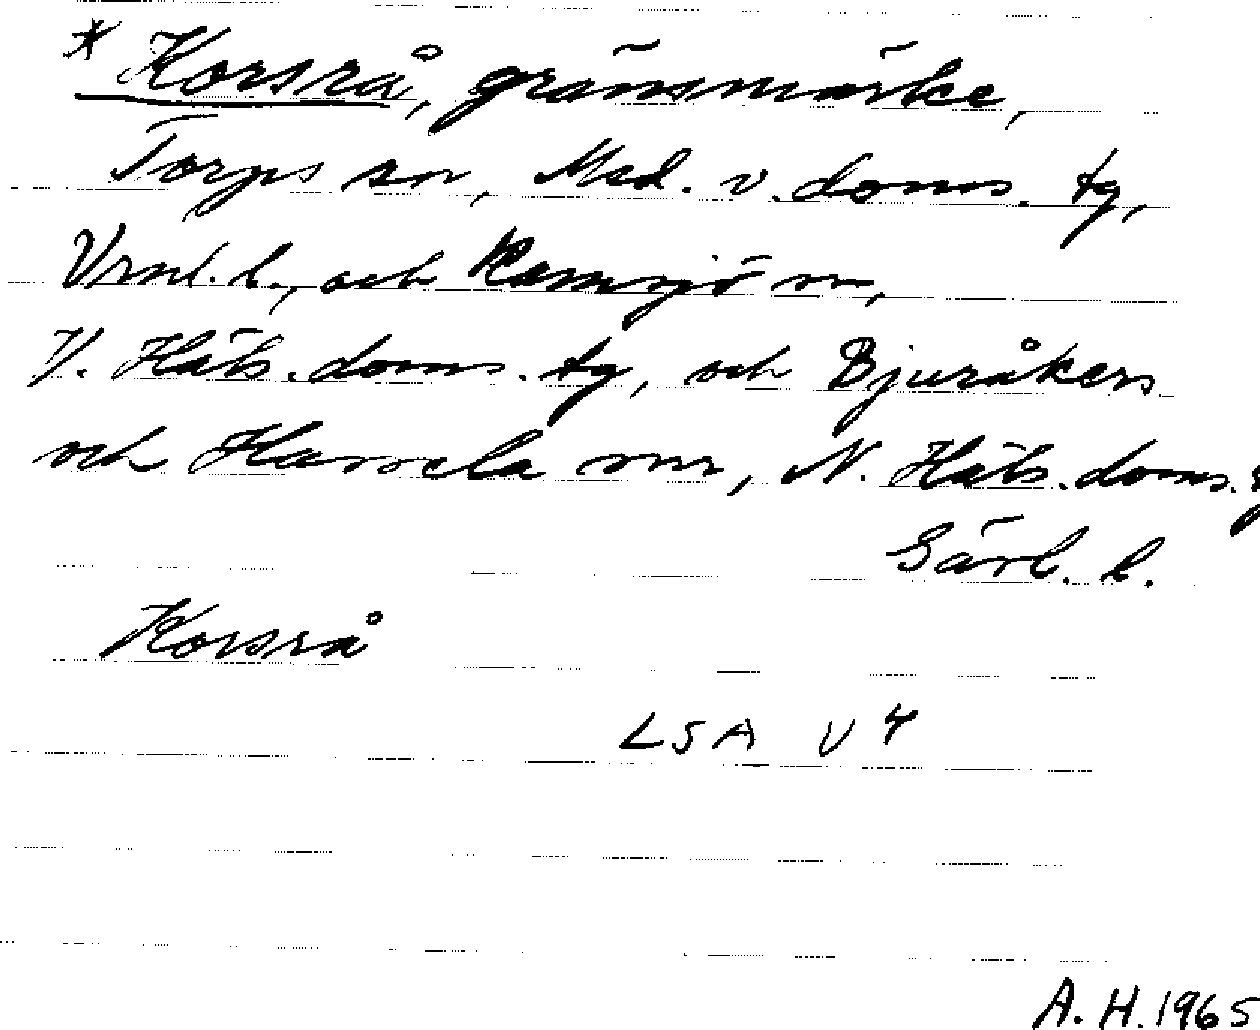 * Korsrå, gränsmärke,
Torps sn, Med. v. doms. tg,
Vrnl. l., och Ramsjö sn,
V. Häls. doms. tg, och Bjuråkers
och Hassela snr, N. Häls. doms. tg
Gävl. l.
Korsrå
LSA V 4
A. H. 1965